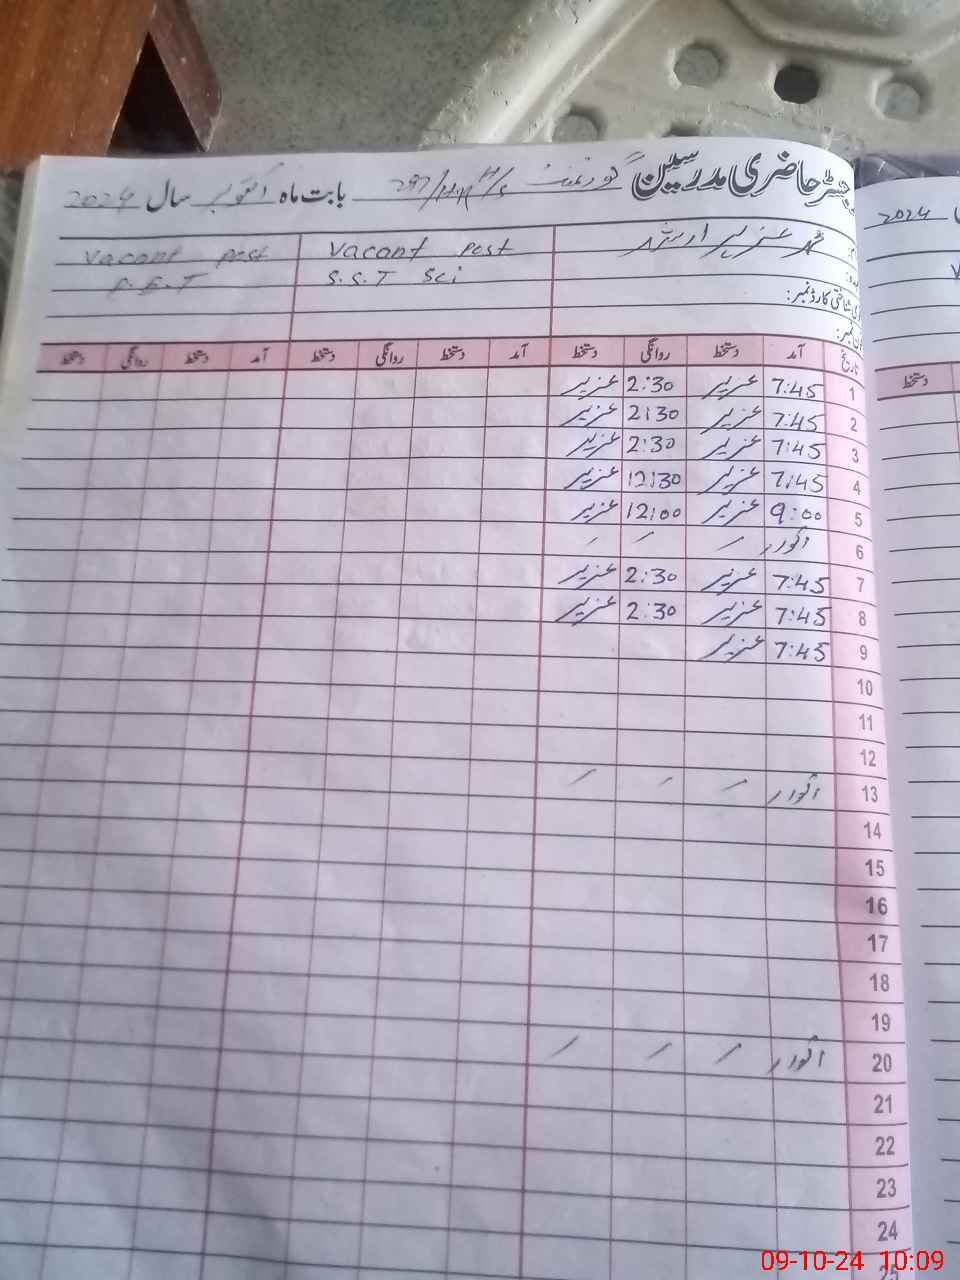 رجسٹر حاضری مدرسین گورنمنٹ 297/HR H/S بابت ماہ اکتوبر سال 2024
2024
محمد عزیر ارشد Vacant Post Vacant Post
S.S.T Sci S.S.T
تاریخ آمد دستخط روانگی دستخط آمد دستخط روانگی دستخط آمد دستخط روانگی دستخط
دستخط
1 7:45 عزیر 2:30 عزیر
2 7:45 عزیر 2:30 عزیر
3 7:45 عزیر 2:30 عزیر
4 7:45 عزیر 12:30 عزیر
5 9:00 عزیر 12:00 عزیر
6 اتوار
7 7:45 عزیر 2:30 عزیر
8 7:45 عزیر 2:30 عزیر
9 7:45 عزیر
10
11
12
13 اتوار
14
15
16
17
18
19
20 اتوار
21
22
23
24
25
09-10-24 10:09